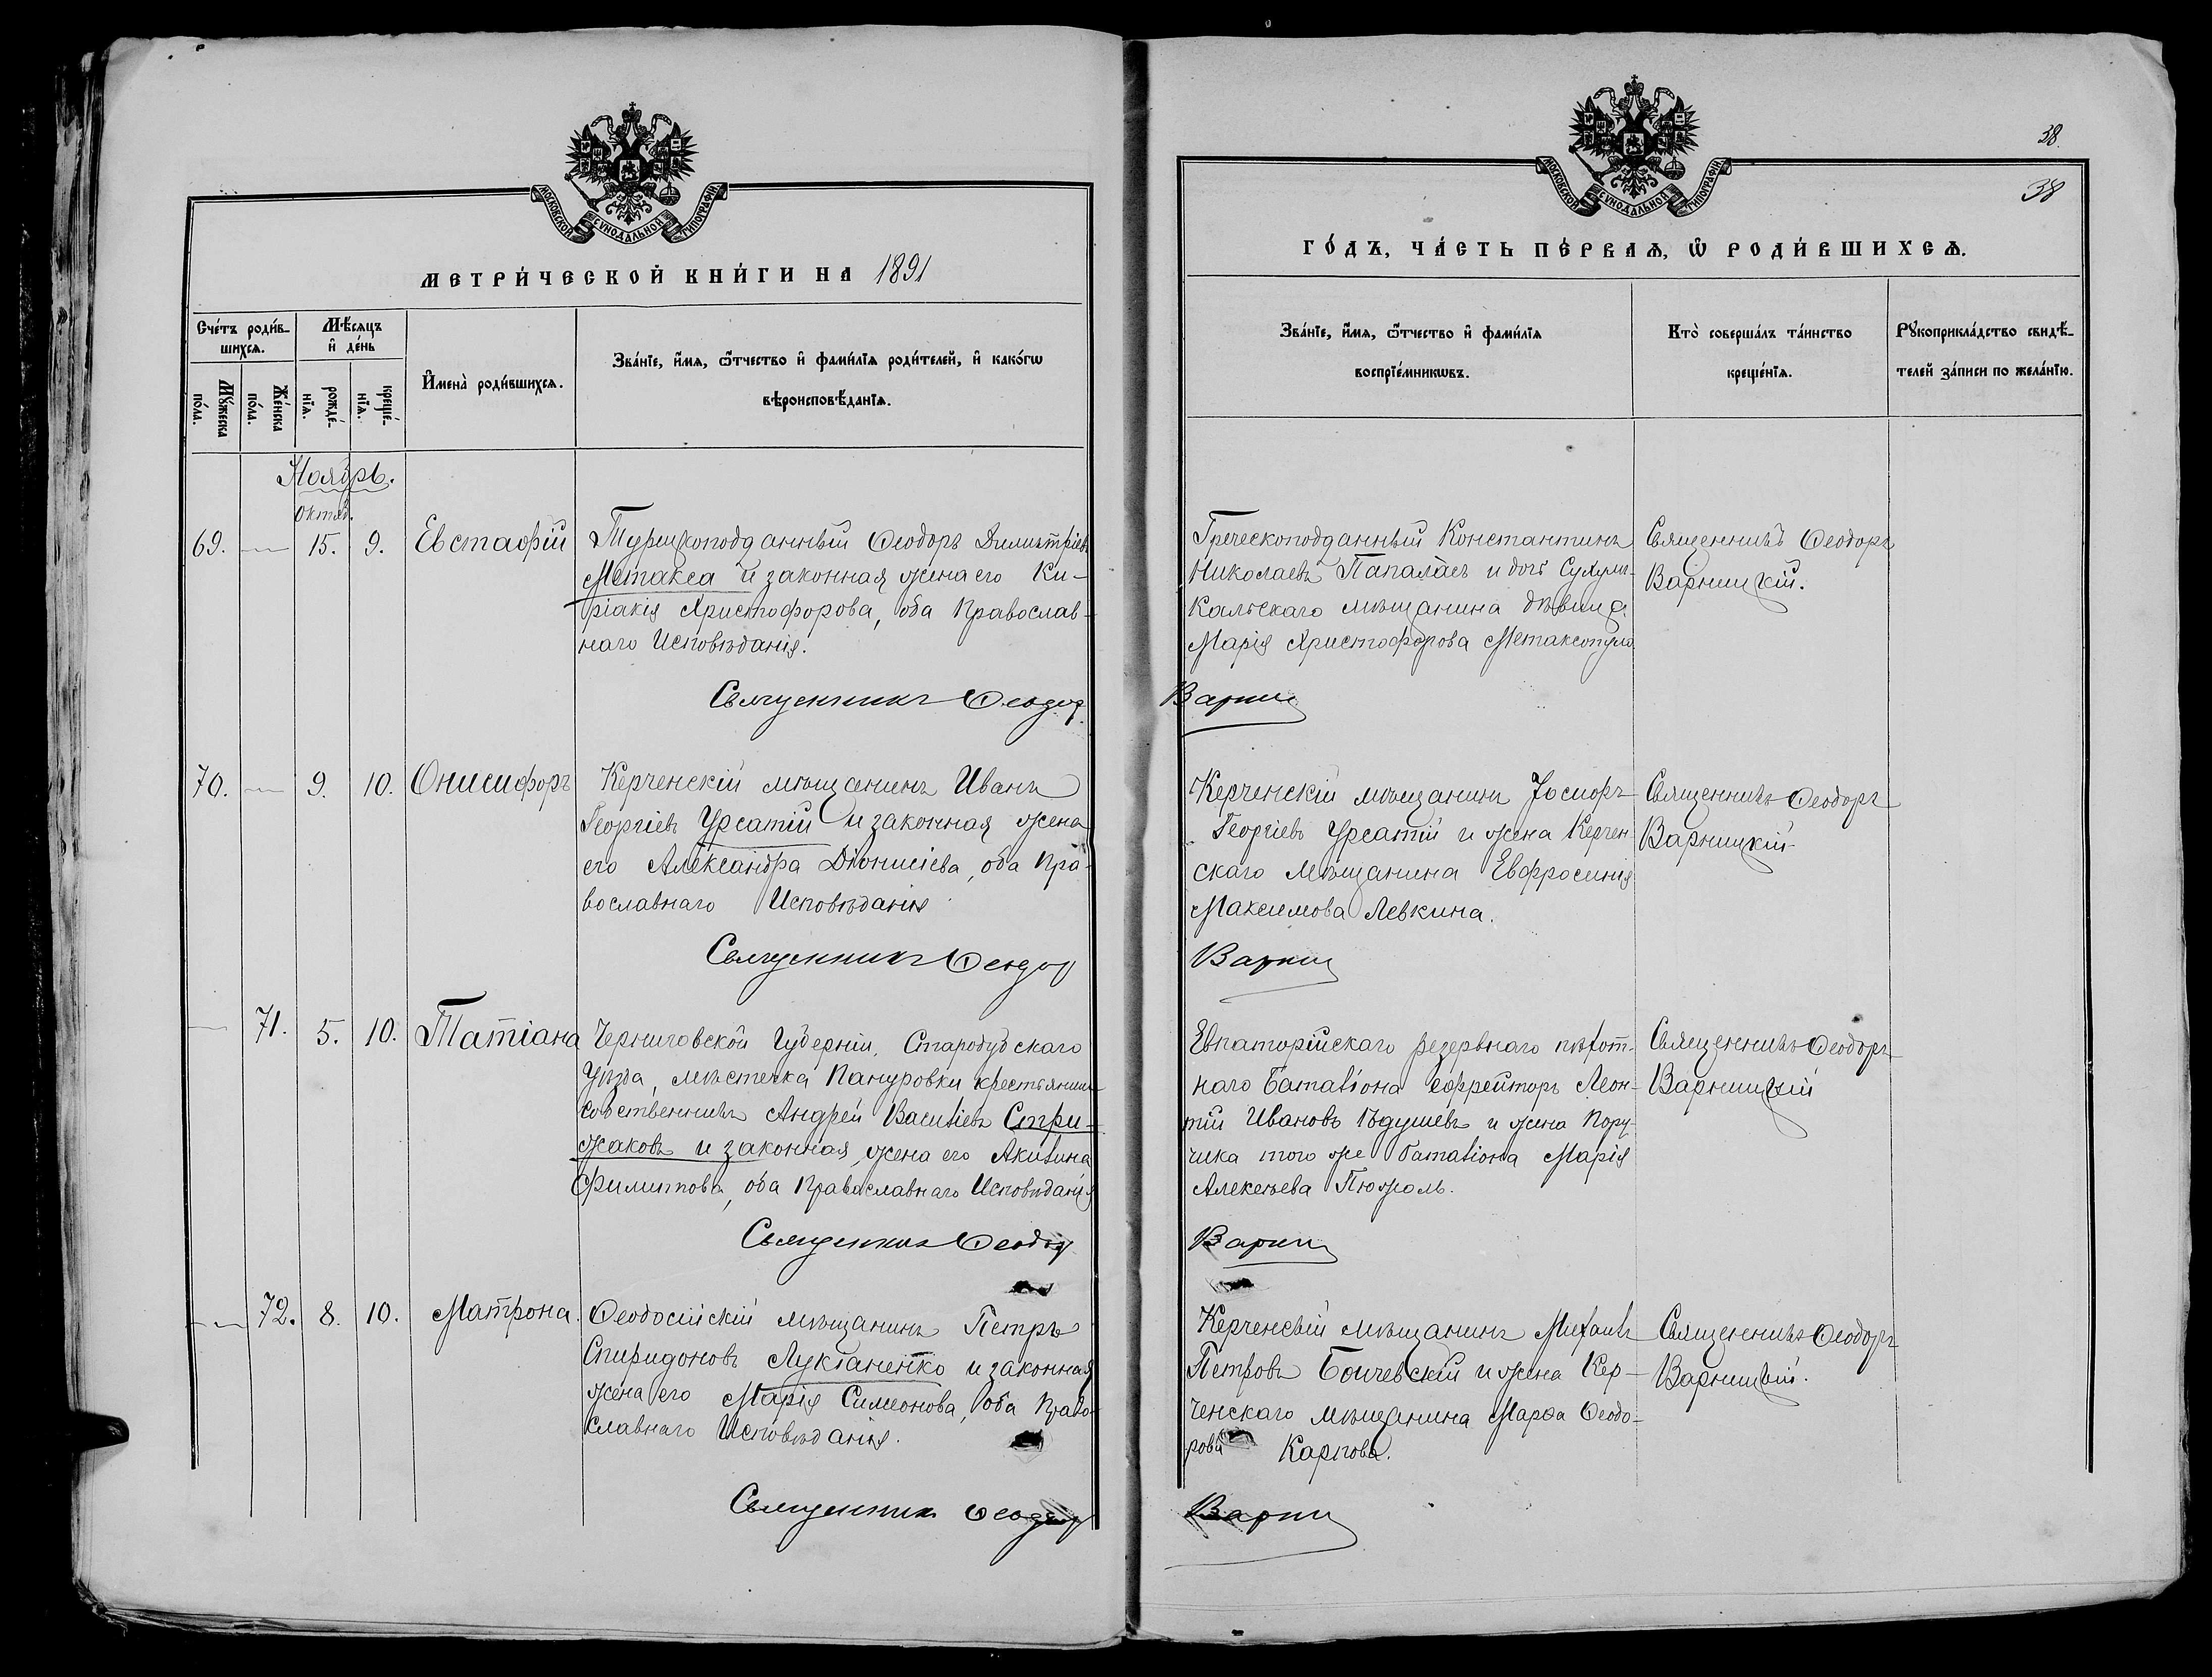 МОСКОВСКОЙ СѴНОДАЛЬНОЙ ТИПОГРАФІИ
МЕТРИ́ЧЕСКОЙ КНИ́ГИ НА 1891
Сче́тъ роди́в-
шихсѧ.
Мѣ́сѧцъ
и҆ де́нь
Мꙋ́жеска
по́ла.
Же́нска
по́ла.
рожде́-
нїѧ.
креще́-
нїѧ.
И҆мена̀ роди́вшихсѧ.
Зва́нїе, и҆́мѧ, ѻ҆́тчество и҆ фами́лїѧ роди́телей, и҆ како́гѡ
вѣроисповѣ́данїѧ.
Ноябрь.
Октяб.
69. — 15. 9. Евстафій
Турецкоподданный Ѳеодоръ Димитріевъ
Метакса и законная жена его Ки-
ріакія Христофорова, оба Православ-
наго Исповѣданія.
Священникъ Ѳеодор
70. — 9. 10. Онисифоръ
Керченскій мѣщанинъ Иванъ
Георгіевъ Урсатій и законная жена
его Александра Діонисіева, оба Пра-
вославнаго Исповѣданія
Священникъ Ѳеодор
— 71. 5. 10. Татіана
Черниговской Губерніи, Стародубскаго
Уѣзда, мѣстечка Пануровки крестьянинъ
собственникъ Андрей Василіевъ Стри-
жаковъ и законная жена его Акилина
Филиппова, оба Православнаго Исповѣданія
Священникъ Ѳеодор
— 72. 8. 10. Матрона.
Ѳеодосійскій мѣщанинъ Петръ
Спиридоновъ Лукіаненко и законная
жена его Марія Симеонова, оба Право-
славнаго Исповѣданія.
Священникъ Ѳеодор
38.
38
МОСКОВСКОЙ СѴНОДАЛЬНОЙ ТИПОГРАФІИ
ГО́ДЪ, ЧА́СТЬ ПЕ́РВАѦ, Ѡ҆ РОДИ́ВШИХСѦ.
Зва́нїе, и҆́мѧ, ѻ҆́тчество и҆ фами́лїѧ
воспрїе́мникѡвъ.
Кто̀ соверша́лъ та́инство
креще́нїѧ.
Рꙋкоприкла́дство свидѣ́-
телей за́писи по жела́нїю.
Греческоподданный Константинъ
Николаевъ Папаласъ и дочь Сухумъ-
Кальскаго мѣщанина дѣвица
Марія Христофорова Метаксопуло
Священникъ Ѳеодоръ
Варницкій.
Варниц
Керченскій мѣщанинъ Іосифъ
Георгіевъ Урсатій и жена Керчен
скаго мѣщанина Евфросинія
Максимова Левкина.
Священникъ Ѳеодоръ
Варницкій
Варниц
Евпаторійскаго резервнаго пѣхот-
наго Баталіона ефрейторъ Леон-
тій Ивановъ и жена Пору-
чика того же Баталіона Марія
Алексѣева
Священникъ Ѳеодоръ
Варницкій
Варниц
Керченскій мѣщанинъ Михаилъ
Петровъ Бончевскій и жена Кер-
ченскаго мѣщанина Марѳа Ѳеодо-
рова Карпова.
Священникъ Ѳеодоръ
Варницкій.
Варниц